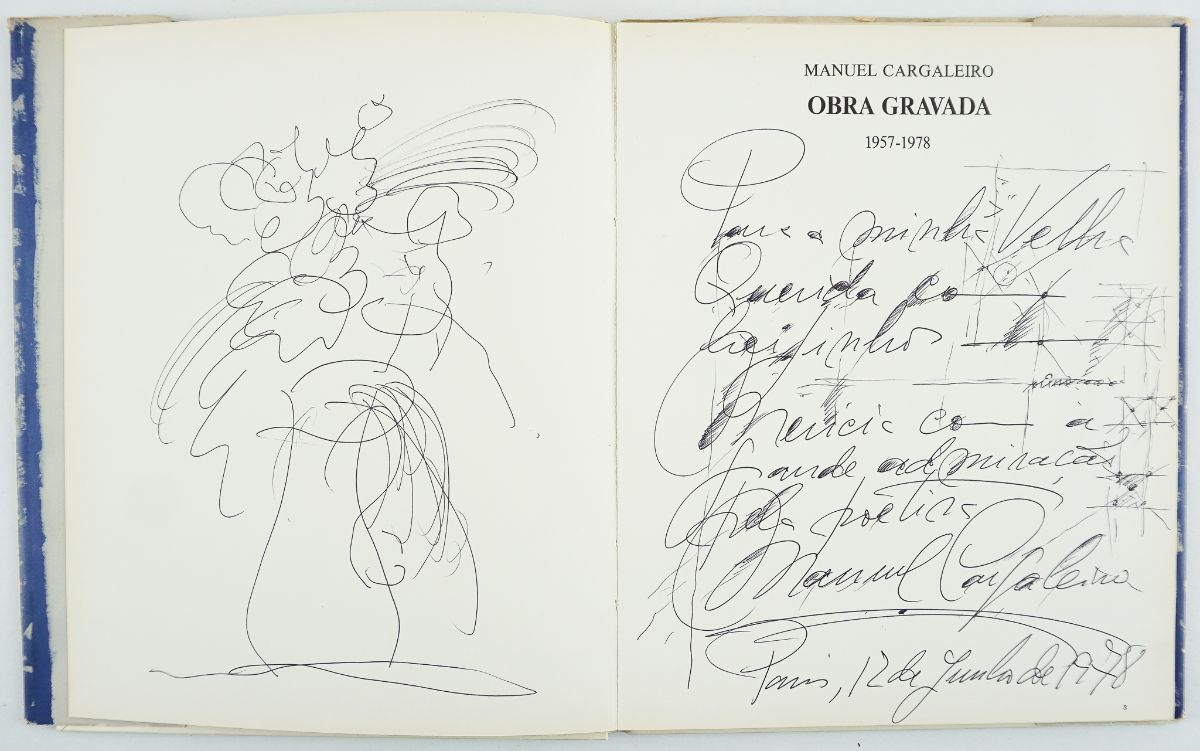 MANUEL CARGALEIRO
OBRA GRAVADA
1957-1978
Para a minha Velha
Querida co
beijinhos
com a
grande admiração
pela poética
Manuel Cargaleiro
Paris, 12 de Junho de 1978
3